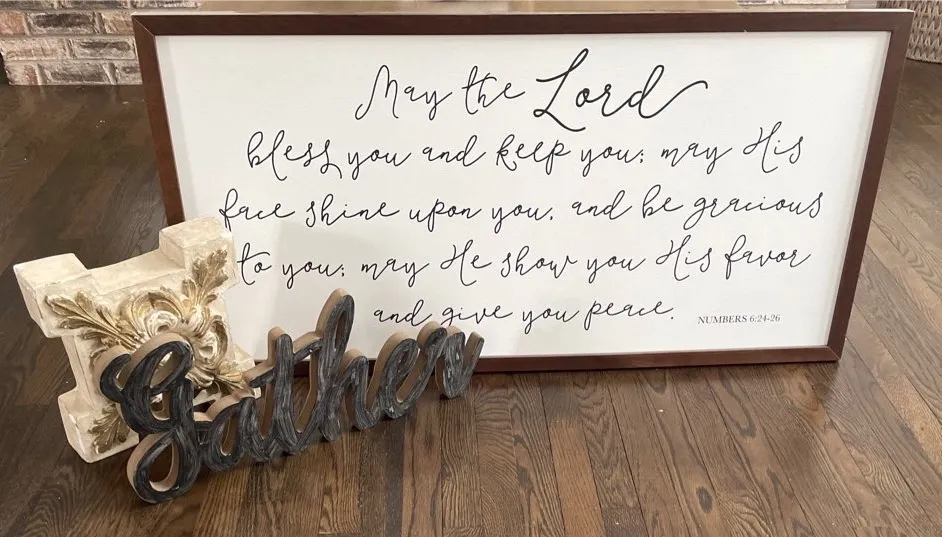 May the Lord
bless you and keep you; may His
face shine upon you, and be gracious
to you; may He show you His favor
and give you peace.
NUMBERS 6:24-26
gather